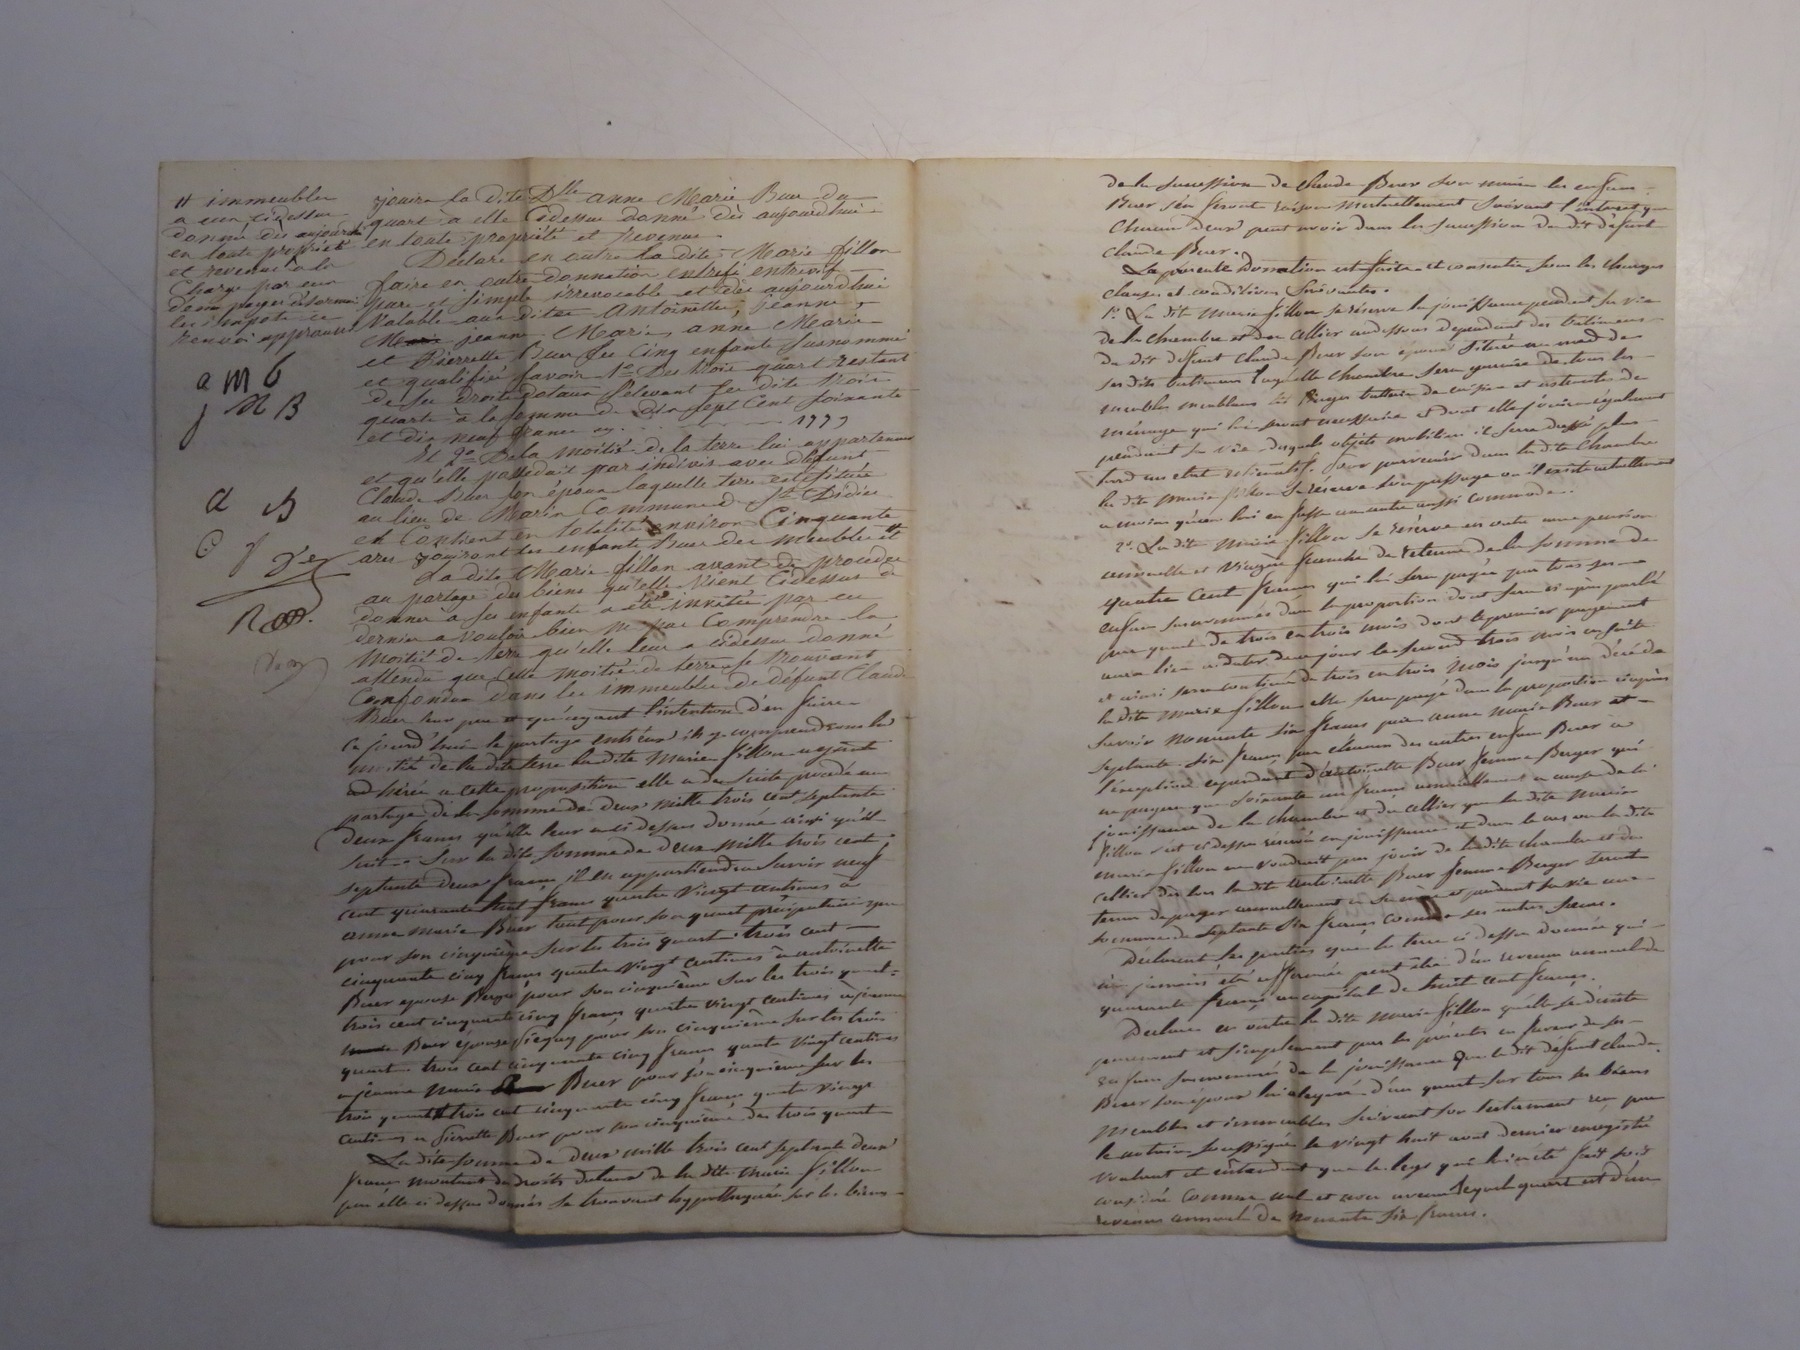 # immeubles
a eux cidessus
donné dès aujourd'hui
en toute propriété
et revenus à la
charge par eux
d'en payer désormais
les impots ce
renvoi approuvé
a m b
j M B
a B
jouira la dite Dlle anne Marie Buer du
quart à elle Cidessus donné dès aujourdhui
en toute propriété et revenus
Déclare en outre la dite Marie fillon
faire en outre donnation entrefi entrevif
pure et simple irrévocable et dès aujourdhui
Valable aux dites Antoinette, jeanne,
jeanne Marie, anne Marie
et Pierrette Buer ses Cinq enfants susnommés
et qualifiés savoir 1o Des trois quart restant
de ses droits dotaux s'élevant les dits trois
quarts à la somme de dix sept Cent soixante
et dix neuf francs cy. 1779
Et 2o De la moitié de la terre lui appartenant
et qu'elle possédait par indivis avec défunt
Claude Buer son époux laquelle terre est située
au lieu de Marin Commune de St Didier
et Contient en totalité environ Cinquante
ares jouiront les enfants Buer des meubles et #
La dite Marie fillon avant de procéder
au partage des biens qu'elle vient Cidessus de
donner à ses enfants a été invitée par ces
derniers à vouloir bien ne pas Comprendre la
Moitié de terre qu'elle leur a cidessus donné
attendu que cette moitié de terre se trouvant
Confondue dans les immeubles de défunt Claude
Buer leur père et qu'ayant l'intention d'en faire
ce jourd'hui le partage entr'eux ils y comprendront la
moitié de la dite terre la dite Marie fillon ayant
adhéré à cette proposition elle a de suite procédé au
partage de la somme de deux mille trois cent septante
deux francs qu'elle leur a ci dessus donné ainsi qu'il
suit. Sur la dite somme de deux mille trois cent
septante deux francs il en appartiendra savoir neuf
cent quarante huit francs quatre vingt centimes à
anne marie Buer tout pour son quart préciputaire que
pour son cinquième sur les trois quart. trois cent
cinquante cinq francs quatre vingt centimes à antoinette
Buer epouse Berger pour son cinquième sur les trois quart
trois cent cinquante cinq francs quatre vingt centimes à jeanne
Buer épouse pour son cinquième sur les trois
quart. trois cent cinquante cinq francs quatre vingt centimes
a jeanne marie Buer pour son cinquième sur les
trois quart et trois cent cinquante cinq francs quatre vingt
centimes a Pierrette Buer pour son cinquième des trois quart
La dite somme de deux mille trois cent septante deux
francs montant des droits dotaux de la dite marie fillon
par elle ci dessus donnés se trouvant hypothéquée sur les biens
de la succession de Claude Buer son mari les enfans
Buer s'en feront raison mutuellement suivant l'intérêt que
chacun d'eux peut avoir dans les succession du dit défunt
Claude Buer.
La présente donation est faite et consentie sous les charges
clauses et conditions suivantes.
1o La dite marie fillon se réserve la jouissance pendant sa vie
de la chambre et du cellier au dessous dépendant des batimens
du dit défunt Claude Buer son époux situés au nord de
ses dits batimens laquelle chambre sera garnie de tous les
meubles meublans linges batterie de cuisine et ustensiles de
ménage qui lui seront nécessaires et dont elle jouira également
pendant sa vie desquels objets mobiliers il sera dressé plus
tard un état estimatif. Pour parvenir dans la dite chambre
la dite marie fillon se réserve son passage ou il existe actuellement
a moins qu'on lui en fasse un autre aussi commode.
2o La dite marie fillon se réserve en outre une pension
annuelle et viagère franche de retenue de la somme de
quatre cent francs qui lui sera payée par tous ses
enfans susnommés dans la proportion dont sera ci-après parlé
par quart de trois en trois mois dont le premier payement
aura lieu a dater de ce jour le second trois mois ensuite
et ainsi sera continué de trois en trois mois jusqu'au décès de
la dite marie fillon elle sera payé dans la proportion ci après
savoir nonante six francs par anne marie Buer et
septante six francs par chacun des autres enfans Buer à
l'exception cependant d'antoinette Buer femme Berger qui
ne payera que soixante un francs annuellement a cause de la
jouissance de la chambre et du cellier que la dite marie
fillon s'est ci dessus réservé en jouissance et dans le cas ou la dite
marie fillon ne voudrait pas jouir de la dite chambre et du
cellier dès lors la dite antoinette Buer femme Berger serait
tenue de payer annuellement a sa mère et pendant sa vie une
somme de septante six francs comme ses autres soeurs.
Declarent les parties que la terre ci dessus donnée qui
n'a jamais été affermée peut être d'un revenu annuel de
quarante francs au capital de huit cent francs.
Déclare en outre la dite marie fillon quelle se désiste
purement et simplement par les présentes en faveur de ses
enfans susnommés de la jouissance que le dit défunt Claude
Buer son époux lui a légué d'un quart sur tous ses biens
meubles et immeubles suivant son testament reçu par
le notaire soussigné le vingt huit aout dernier enregistré
voulant et entendant que le legs qui lui a été fait soit
considéré comme nul et non avenu lequel quart est d'un
revenu annuel de nonante six francs.